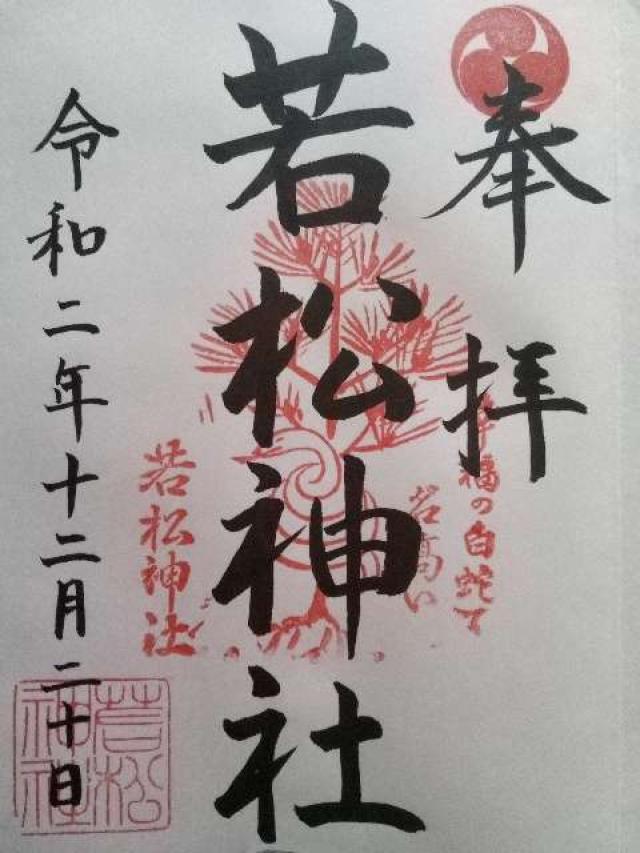 奉拝
幸福の白蛇で
名高い
若松神社
若松神社
令和二年十二月二十日
若松神社